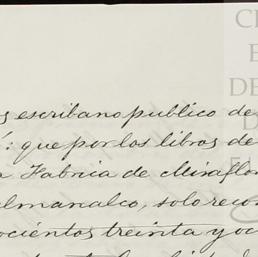 s escribano publico de
: que por los libros de
a Fabrica de Miraflo
lmanalco, solo reco
ocientos treinta y oc